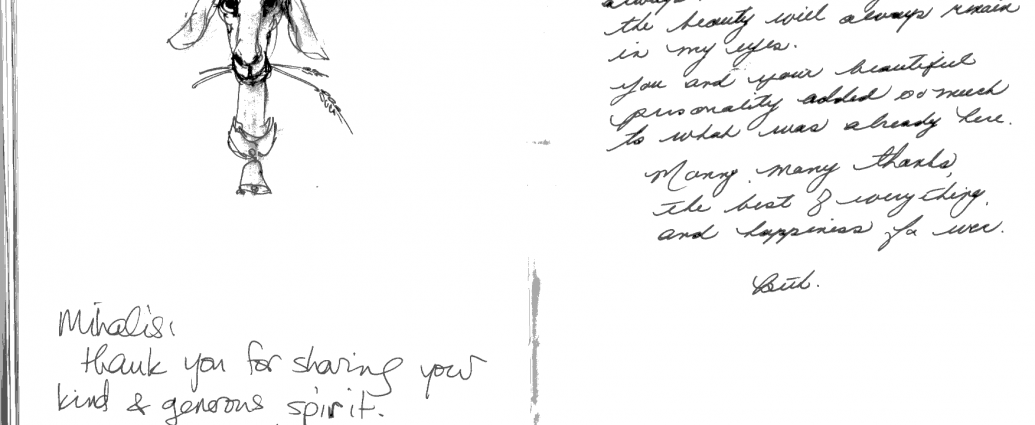 Mihalis:
thank you for sharing your
kind & generous spirit.
always.
the beauty will always remain
in my eyes.
You and your beautiful
personality added so much
to what was already here.
Many, many thanks,
the best of everything,
and happiness for ever.
Beth.